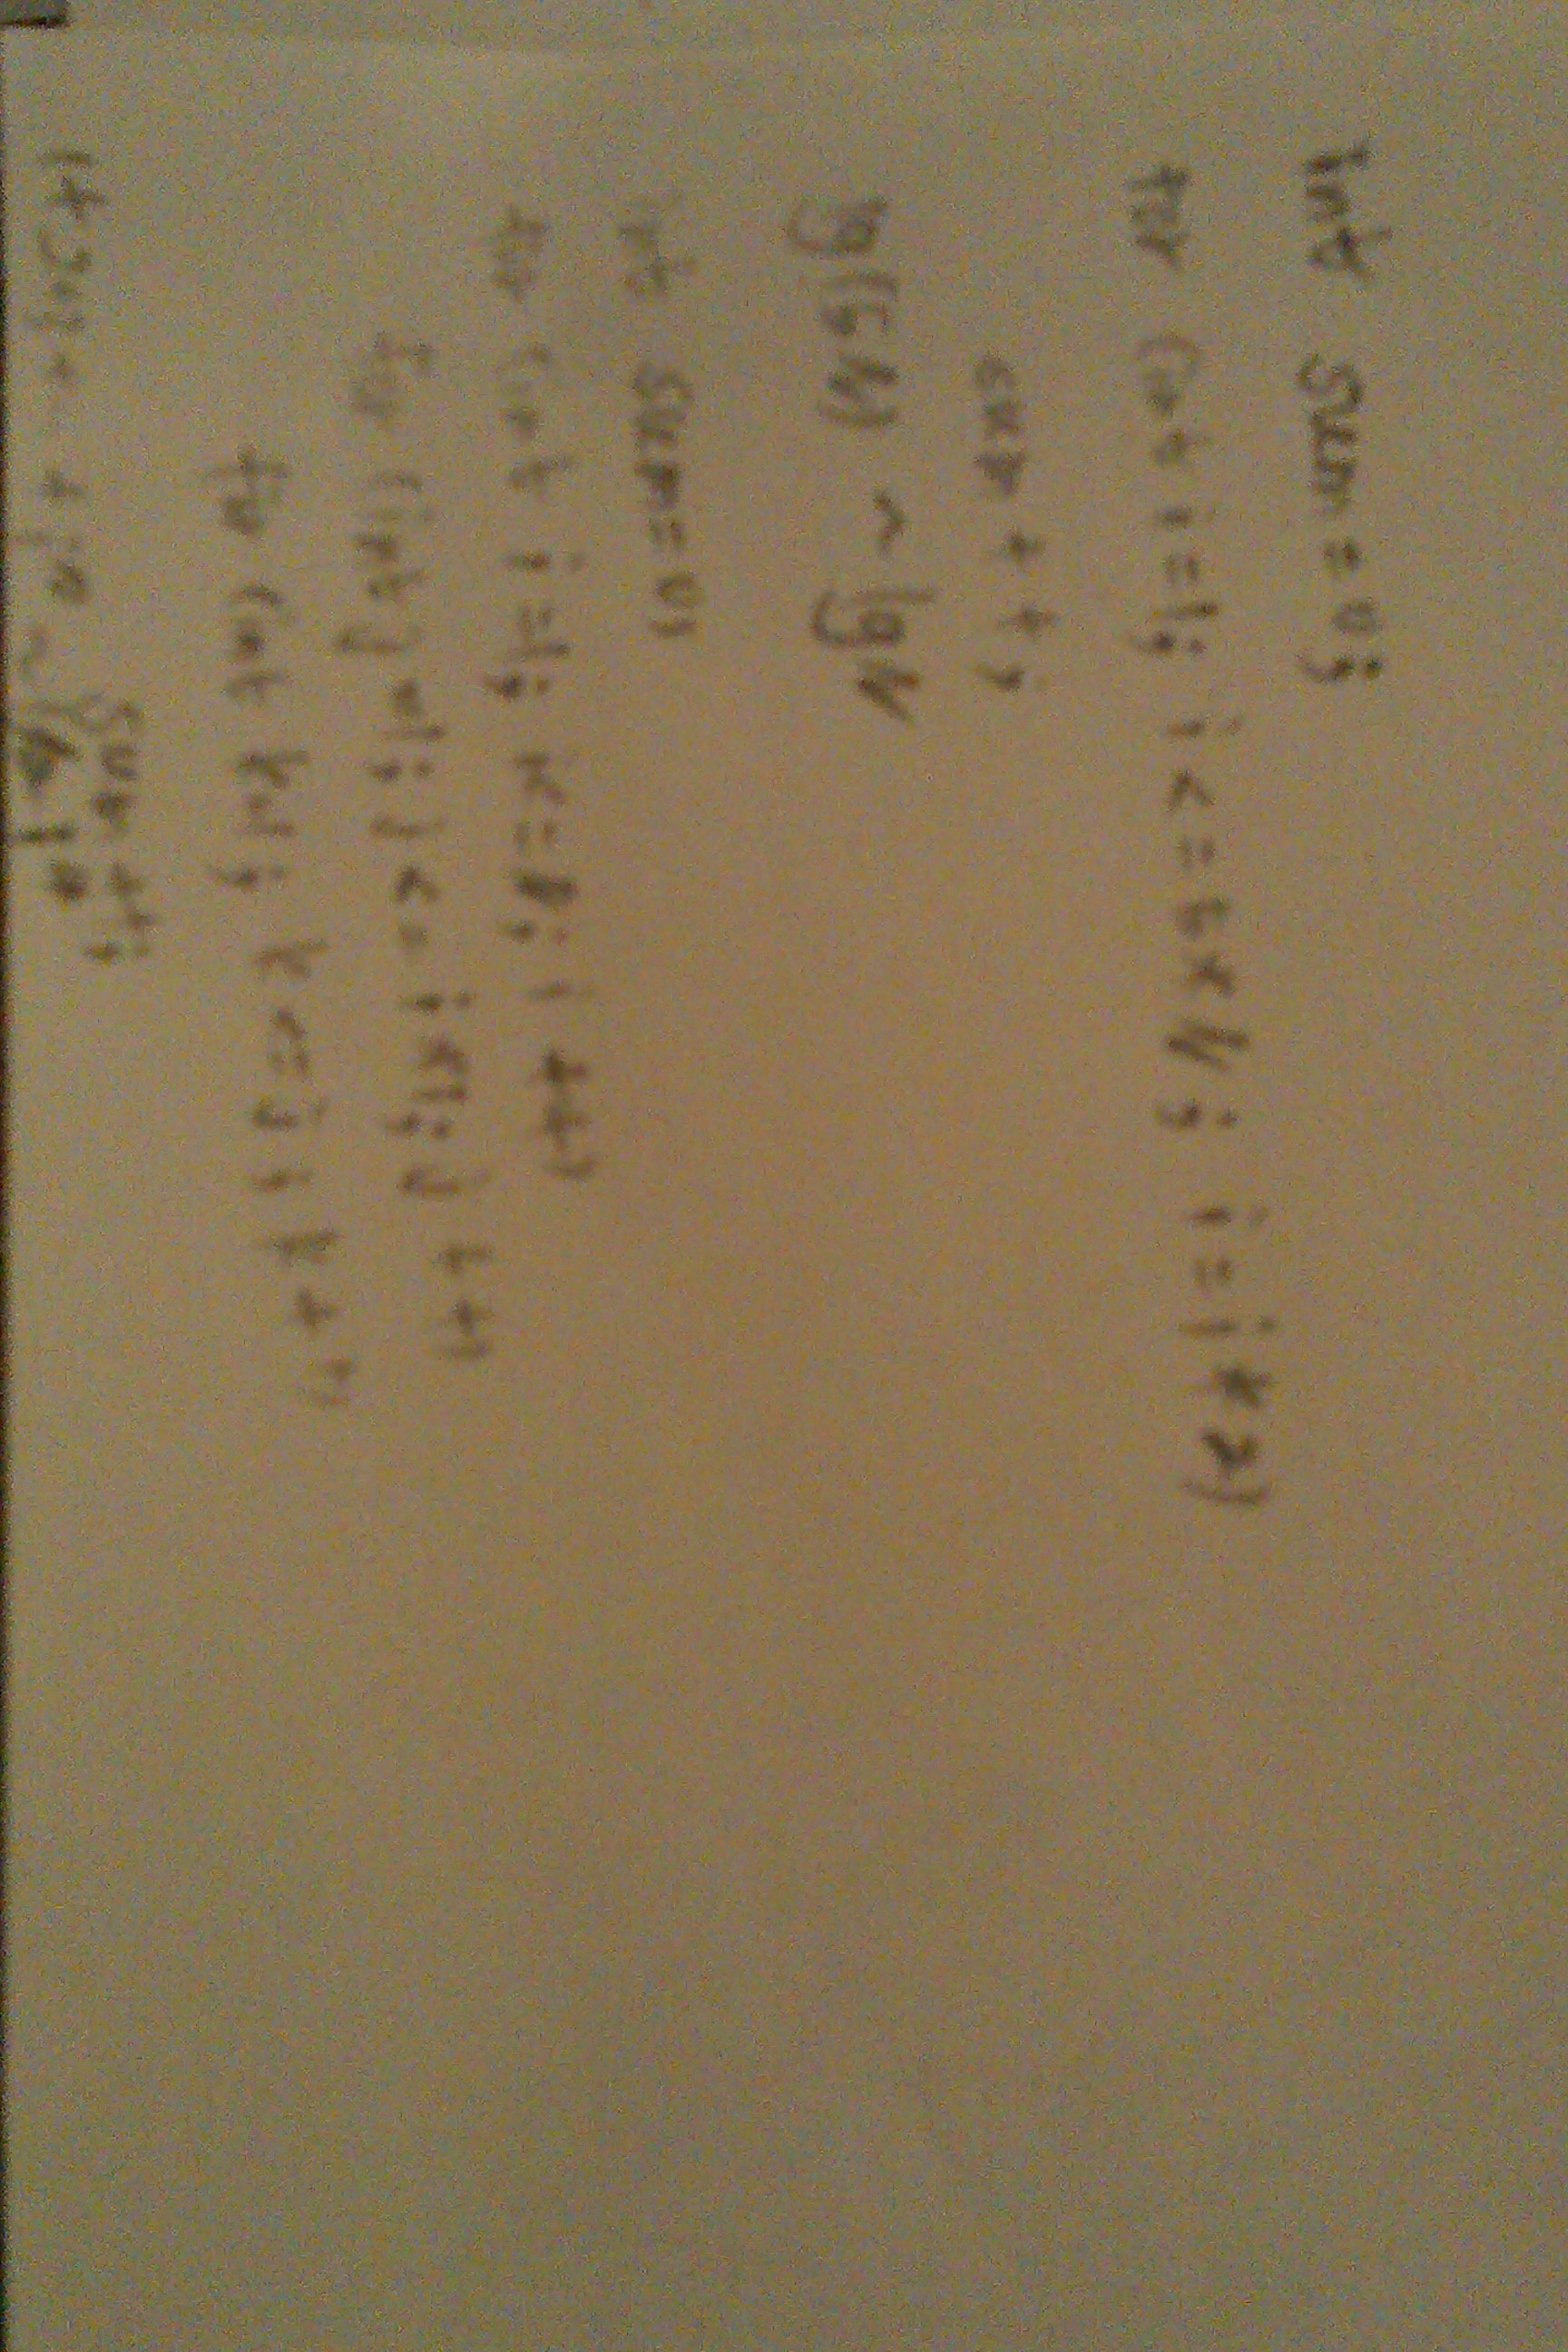 int sum = 0;
for (int i=1; i <= 5*N; i=i*2)
sum ++;
lg(5N) ~ lgN
int sum = 0;
for (int i=1; i<= ; i++)
for (int j=1; j<= i*i; j++
for (int k=1; k<=j; k++
sum++;